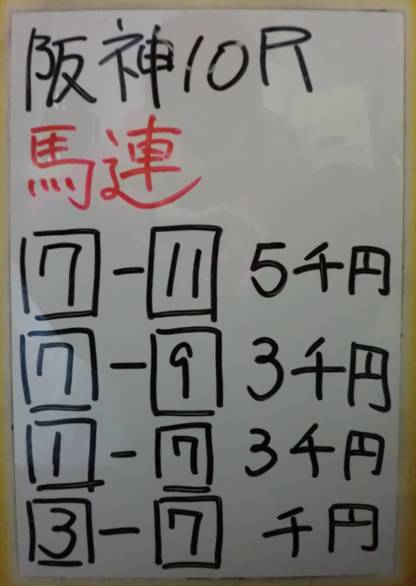 阪神10R
馬連
7-11 5千円
7-9 3千円
1-7 3千円
3-7 千円